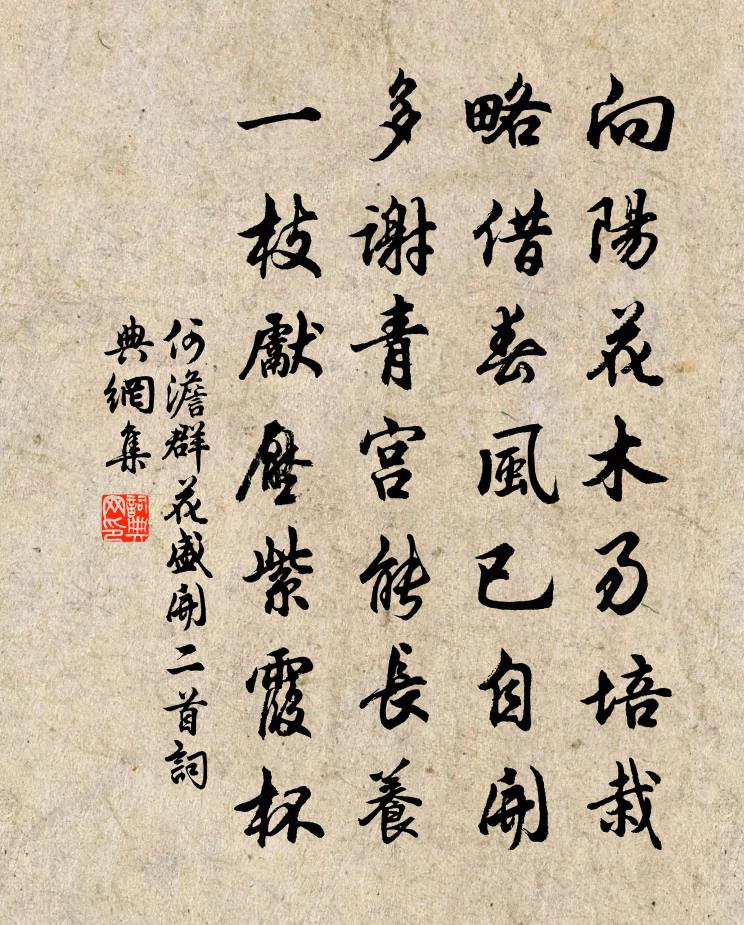 向陽花木易培栽
略借春風已自開
多謝青宮能長養
一枝獻壓紫霞杯
何澹群花盛開二首詞
典網集
詞典网印